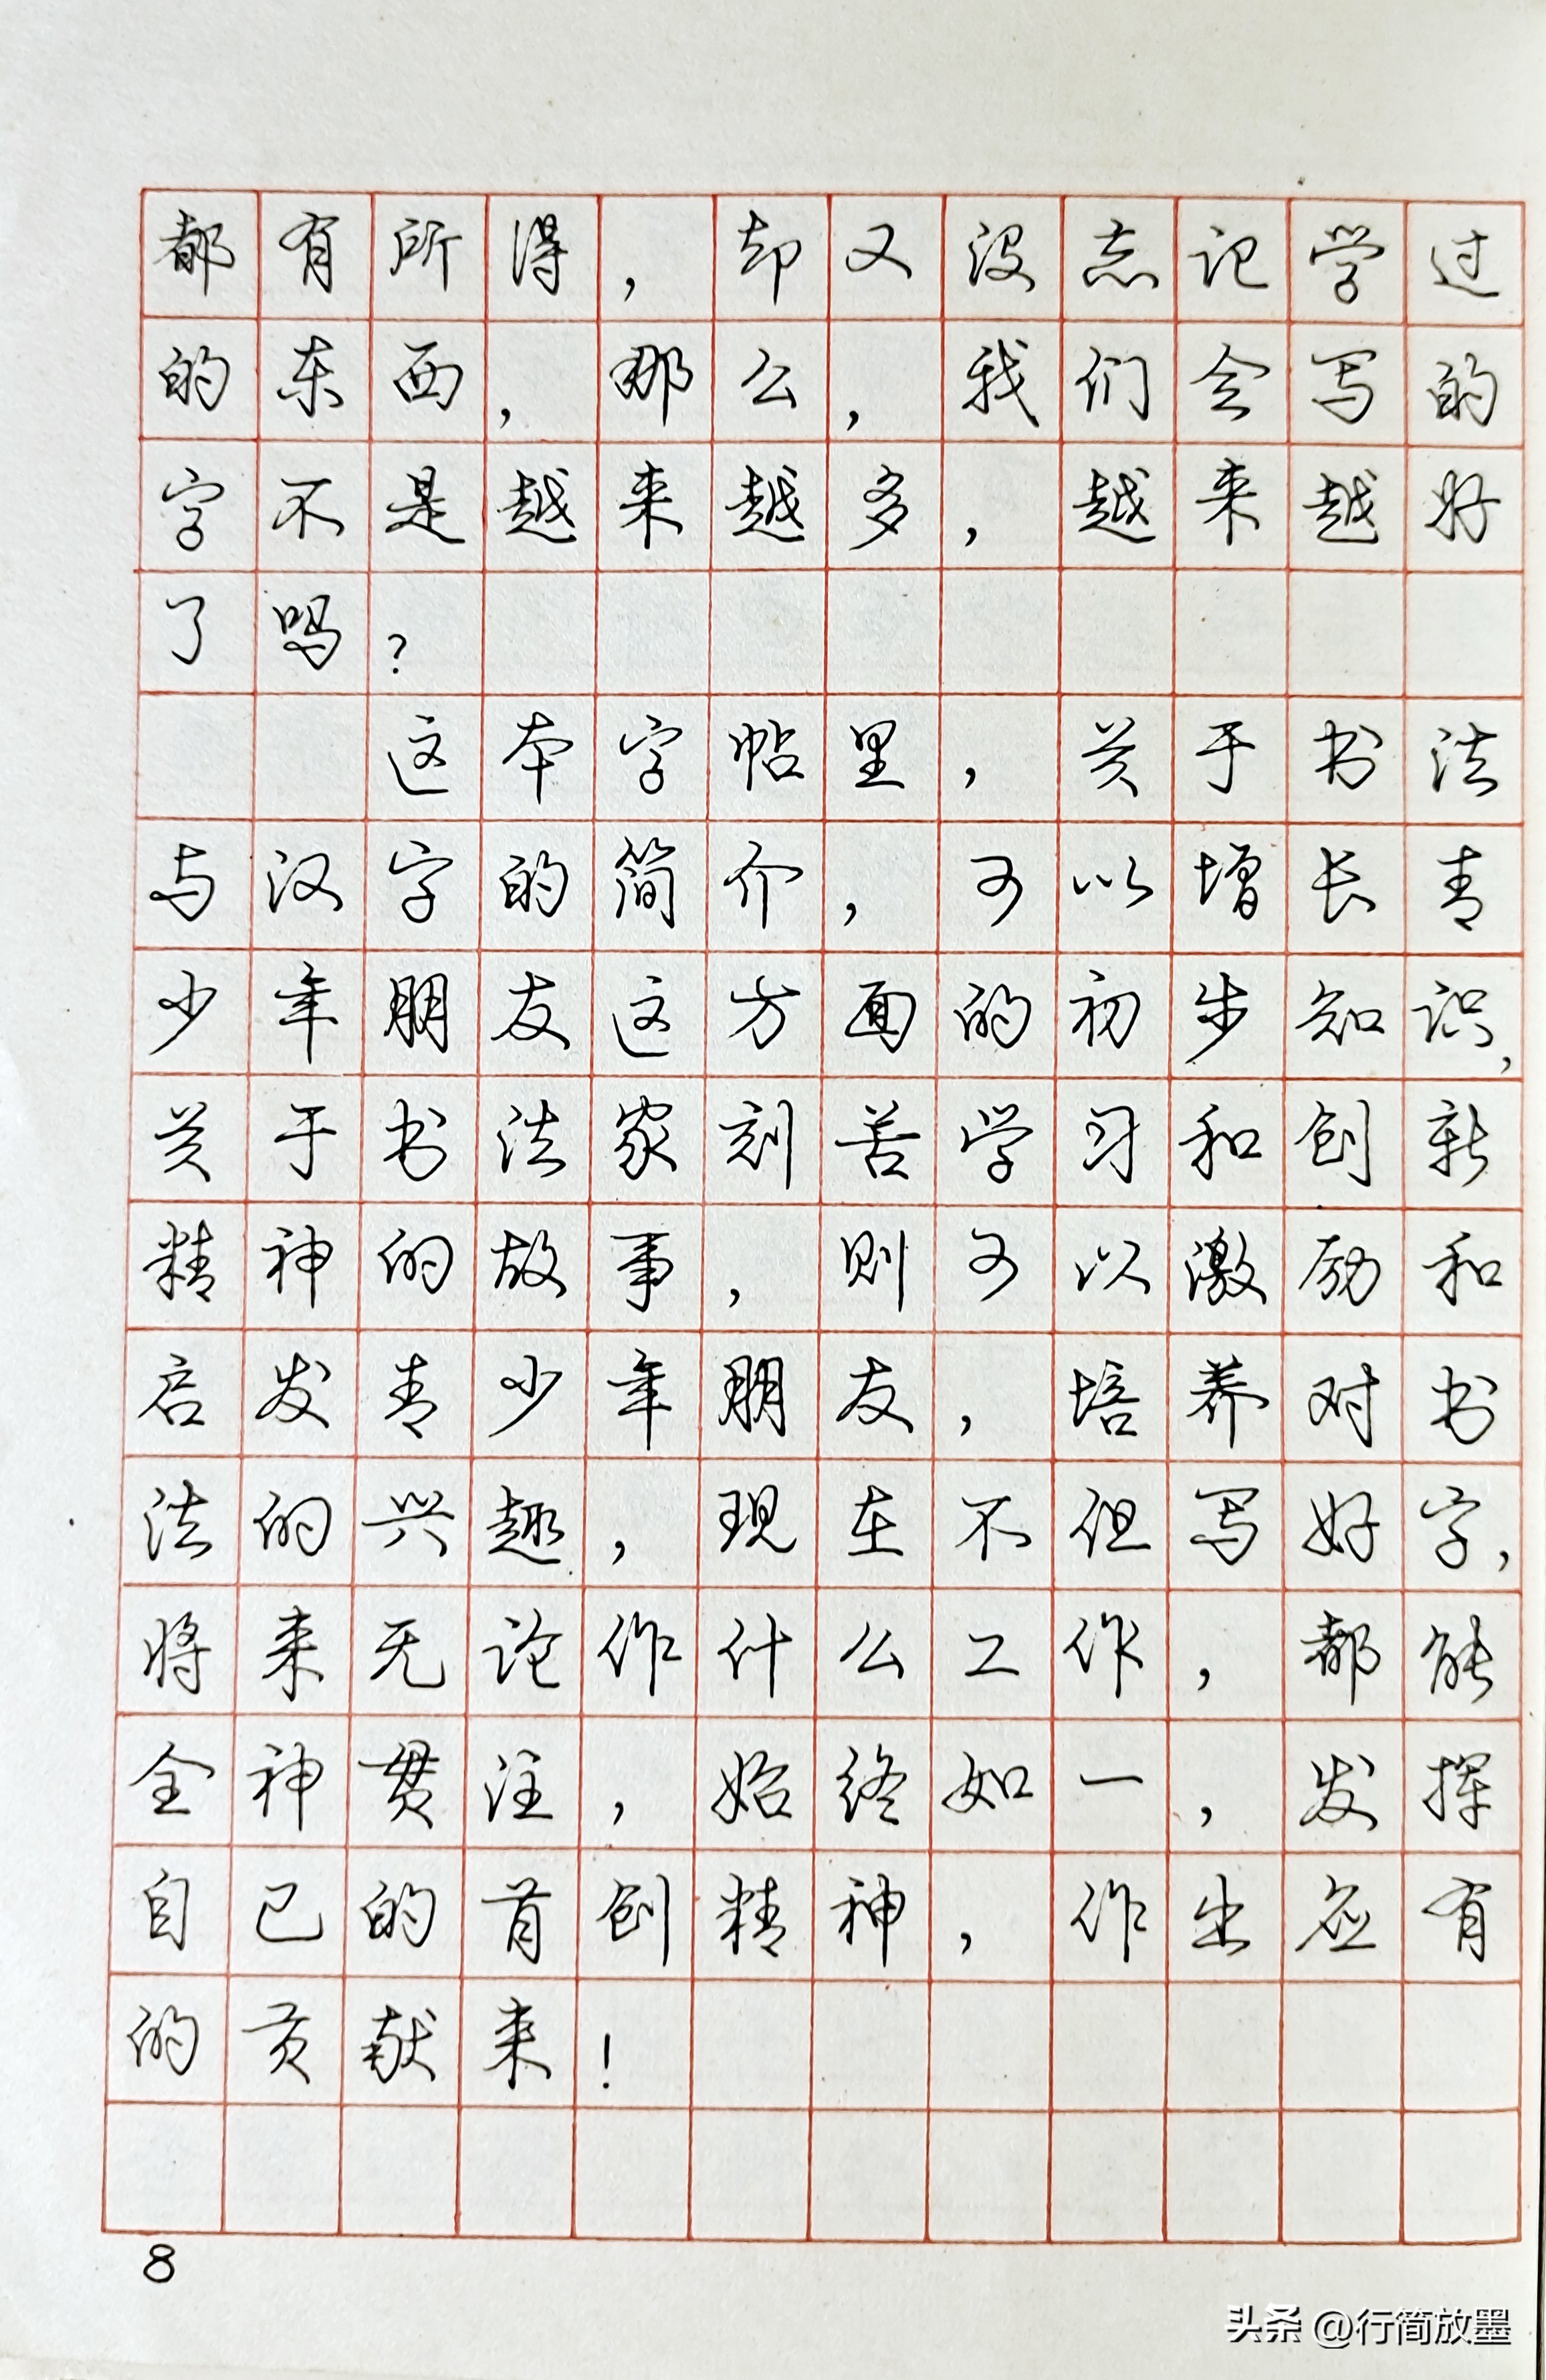 都有所得，却又没忘记学过
的东西，那么，我们会写的
字不是越来越多，越来越好
了吗？
这本字帖里，关于书法
与汉字的简介，可以增长青
少年朋友这方面的初步知识，
关于书法家刻苦学习和创新
精神的故事，则可以激励和
启发青少年朋友，培养对书
法的兴趣，现在不但写好字，
将来无论作什么工作，都能
全神贯注，始终如一，发挥
自己的首创精神，作出应有
的贡献来！
8
头条 @行简放墨